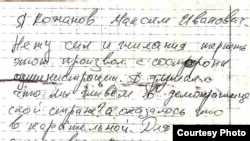 Я Кожанов Максим Иванович.
Нету сил и желания терпеть
этот произвол с со стороны
администрации. Я думаю
что мы живем в демократиче
ской стране? а оказалось что
в карательной. Для
Courtesy Photo